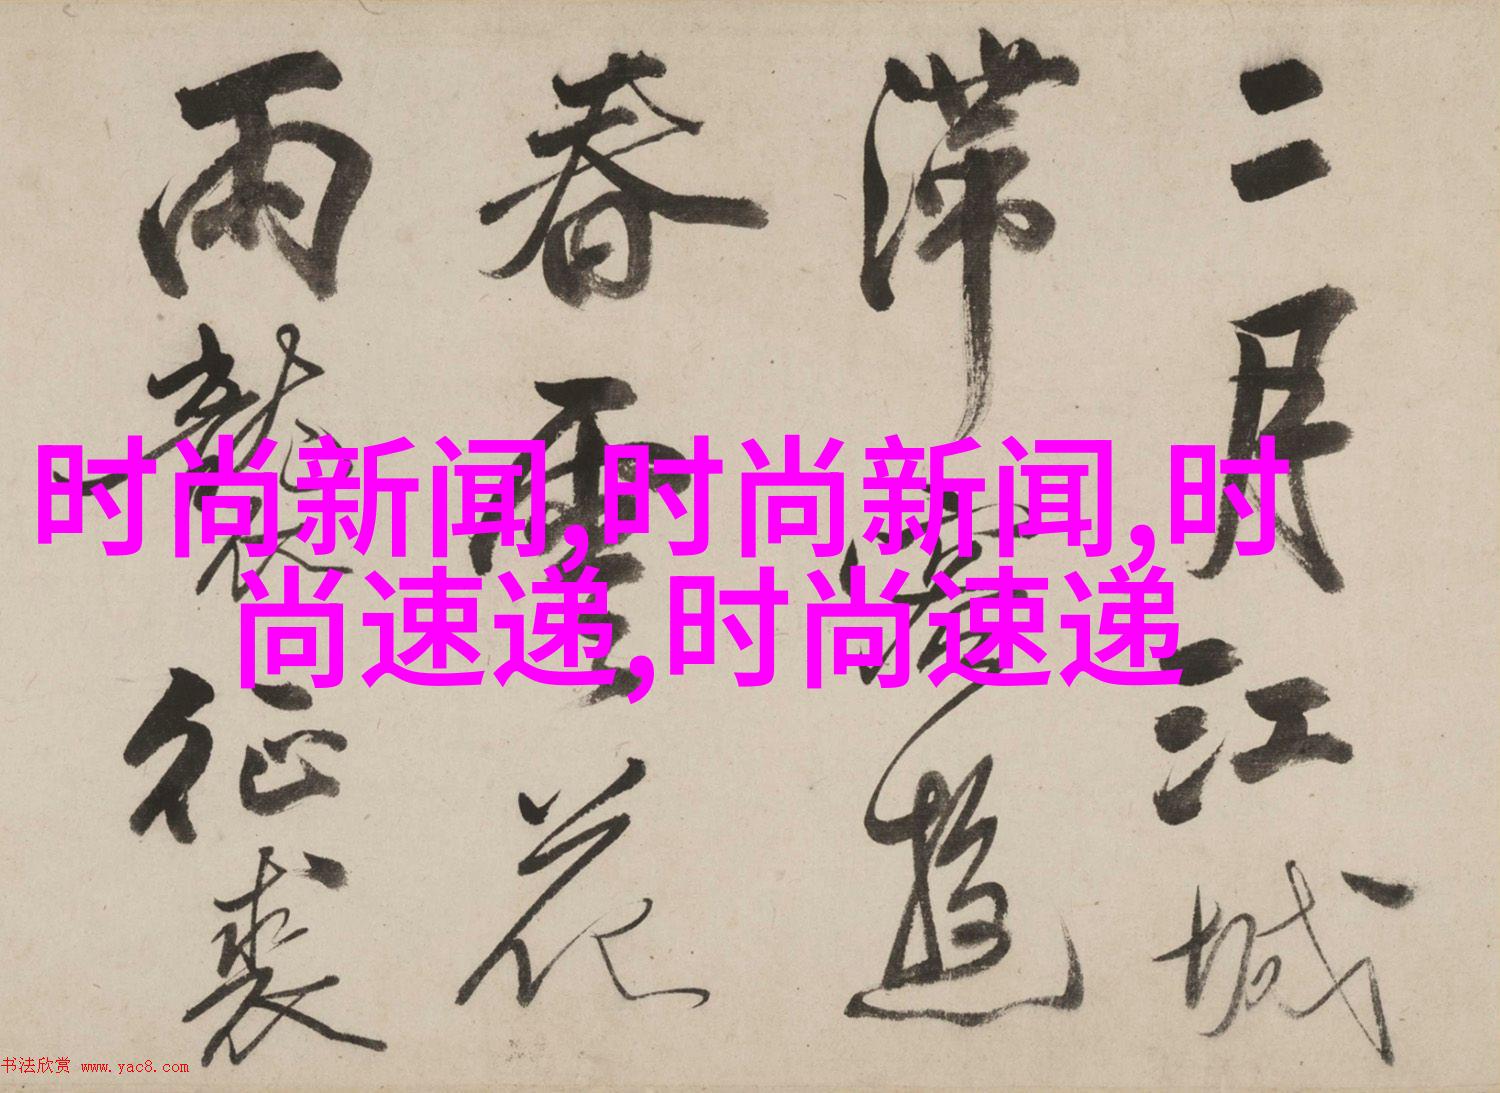 二月江城
滯遊
春雲花
雨襲征裘
时尚新闻,时尚新闻,时
尚速递,时尚速递
书法欣赏 www.yac8.com